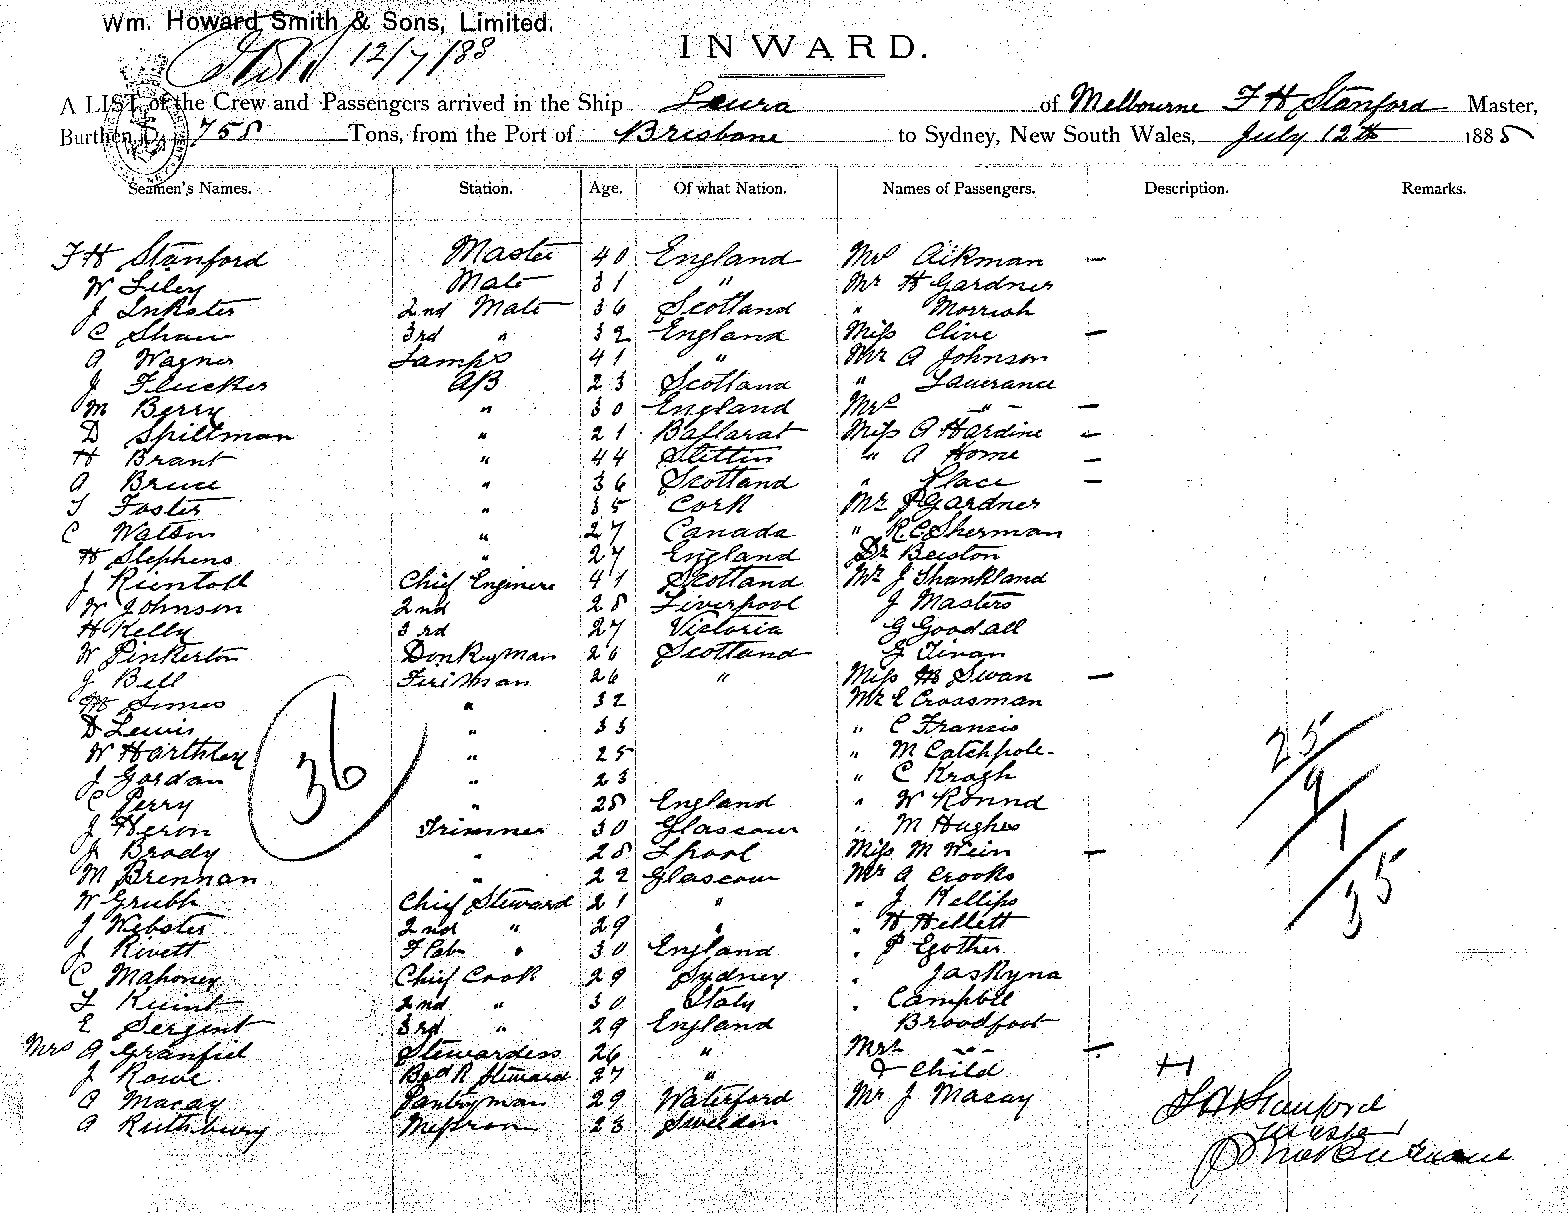 Wm. Howard Smith & Sons, Limited.
12/7/88
INWARD.
A LIST of the Crew and Passengers arrived in the Ship Leura of Melbourne F H Stanford Master,
Burthen 758 Tons, from the Port of Brisbane to Sydney, New South Wales, July 12th 1888
Seamen's Names. Station. Age. Of what Nation. Names of Passengers. Description. Remarks.
F H Stanford Master 40 England Mrs Aikman —
W Liley Mate 31 " Mr H Gardner
J Inkster 2nd Mate 36 Scotland " Morrish
C Shaw 3rd " 32 England Miss Clive —
A Wagner Lamps 41 " Mr A Johnson
J Flucker AB 23 Scotland " Laurance
M Berry " 30 England Mrs " —
D Spillman " 21 Ballarat Miss A Hardine —
H Brant " 44 Stettin " A Home —
A Bruce " 36 Scotland " Place —
T Foster " 35 Cork Mr P Gardner
C Watson " 27 Canada " R C Sherman
H Stephens " 27 England Dr Beeston
J Rientoll Chief Enginere 41 Scotland Mr J Shankland
W Johnson 2nd 28 Liverpool J Masters
H Kelly 3rd 27 Victoria G Goodall
W Pinkerton Donkeyman 26 Scotland Tivan
J Bell Fireman 26 " Miss H Swan —
H Simes " 32 Mr E Crossman
D Lewis " 33 " C Francis
W Harthley " 25 " M Catchpole
J Gordan " 23 " C Kragh
C Perry " 28 England " W Ronnd
J Heron Trimmer 30 Glascow " M Hughes
J Brody " 28 Lpool Miss M Wein —
M Brennan " 22 Glascow Mr A Crooks
W Grubb Chief Steward 21 " " J Kellips
J Webster 2nd " 29 " " H Hellett
J Rivett F Cab " 30 England " P Egother
C Mahoney Chief Cook 29 Sydney " Jaskyna
F Kuint 2nd " 30 Italy " Campbll
E Sergent 3rd " 29 England Broadfoot
Mrs A Granfiel Stewardess 26 " Mrs " —
J Rowe Bed R Steward 27 " & Child
A Macay Pantryman 29 Waterford Mr J Macay
A Ruthbury Messroom 23 Sweden
36
25
9
1
35
F H Stanford
Master